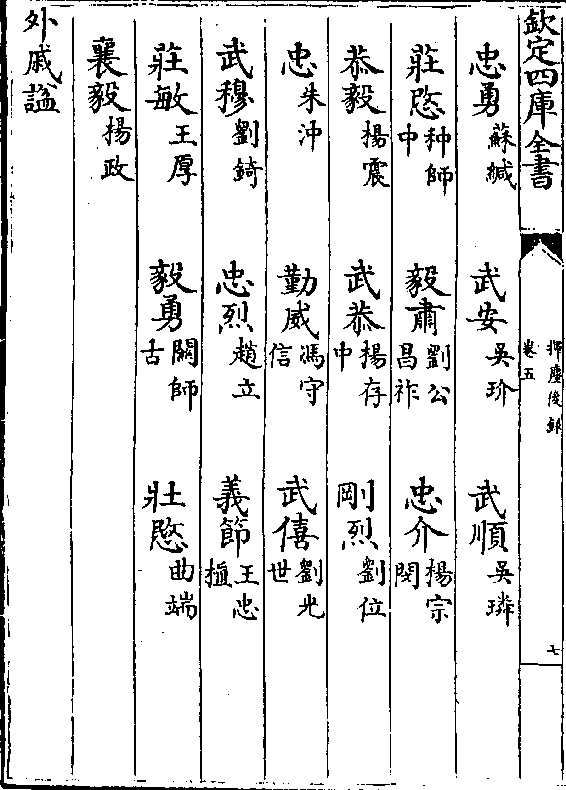 欽定四庫全書
揮麈後錄
卷五
七
忠勇蘇緘 武安吳玠 武順吳璘
莊愍种師中 毅肅劉公昌祚 忠介楊宗閔
恭毅楊震 武恭楊存中 剛烈劉位
忠朱沖 勤威馮守信 武僖劉光世
武穆劉錡 忠烈趙立 義節王忠植
莊敏王厚 毅勇關師古 壯愍曲端
襄毅楊政
外戚諡